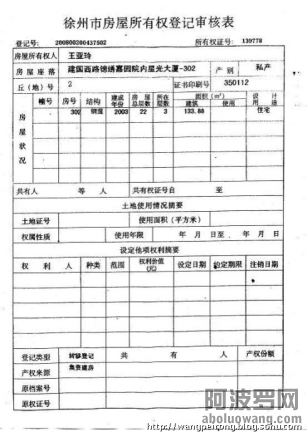 徐州市房屋所有权登记审核表
登记号: 200800200437502 所有权证号: 139778
房屋所有权人 王亚玲
房屋座落 建国西路锦绣嘉园院内星光大厦-302 产别 私产
丘(地)号 2 证书印刷号 350112
房屋状况 幢号 房号 结构 建成年份 房屋总层数 所在层数 面积(㎡) 建筑 使用 设计用途
302 钢混 2003 22 3 133.88 住宅
共有人 等 人 共有权证号自 至
土地使用情况摘要
土地证号 使用面积(平方米)
权属性质 使用年限 年 月 日至 年 月 日
设定他项权利摘要
权利人 种类 范围 权利价值(元) 设定日期 约定期限 注销日期
登记类型 转移登记 共 有 人 产权份额
产权来源 集资建房
原档案号
原权证号
阿波罗网
aboluowang.com
http://wangpeirong.blog.sohu.com